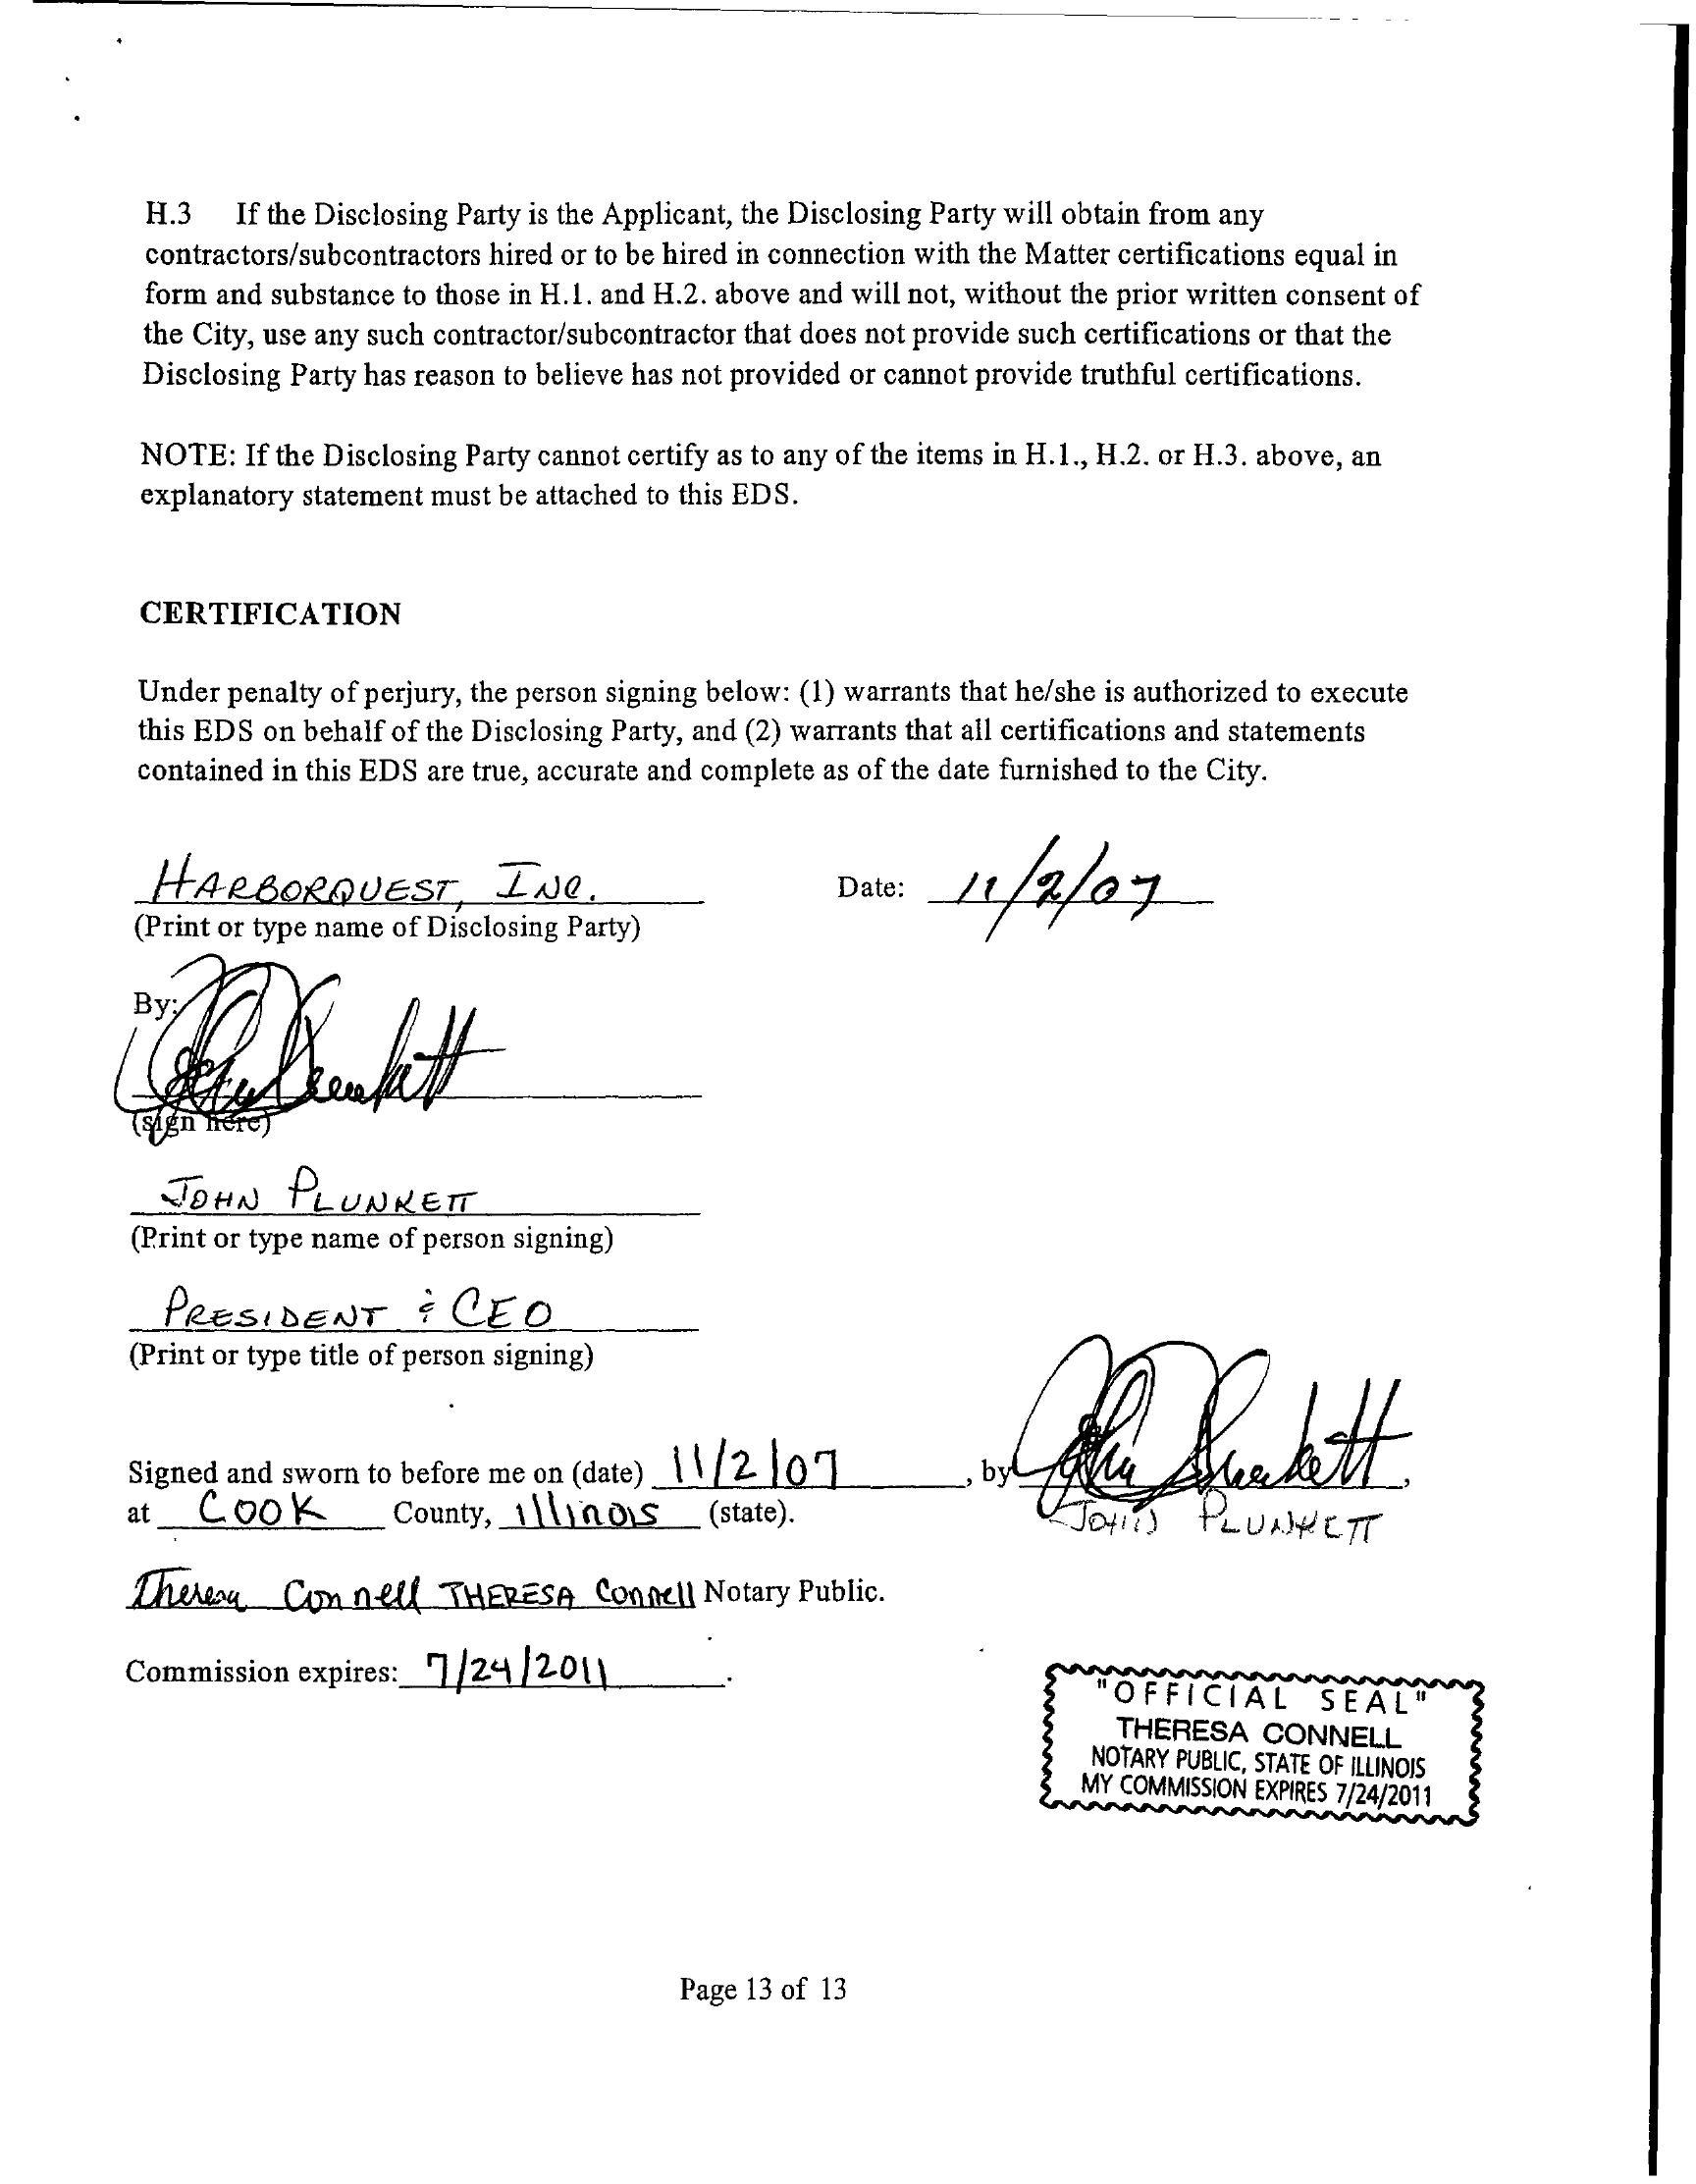 H.3 If the Disclosing Party is the Applicant, the Disclosing Party will obtain from any
contractors/subcontractors hired or to be hired in connection with the Matter certifications equal in
form and substance to those in H.1. and H.2. above and will not, without the prior written consent of
the City, use any such contractor/subcontractor that does not provide such certifications or that the
Disclosing Party has reason to believe has not provided or cannot provide truthful certifications.
NOTE: If the Disclosing Party cannot certify as to any of the items in H.1., H.2. or H.3. above, an
explanatory statement must be attached to this EDS.
CERTIFICATION
Under penalty of perjury, the person signing below: (1) warrants that he/she is authorized to execute
this EDS on behalf of the Disclosing Party, and (2) warrants that all certifications and statements
contained in this EDS are true, accurate and complete as of the date furnished to the City.
HARBORQUEST, INC. Date: 11/2/07
(Print or type name of Disclosing Party)
By: John Plunkett
(sign here)
JOHN PLUNKETT
(Print or type name of person signing)
PRESIDENT & CEO
(Print or type title of person signing)
Signed and sworn to before me on (date) 11/2/07, by John Plunkett,
at COOK County, Illinois (state). JOHN PLUNKETT
Theresa Connell THERESA Connell Notary Public.
Commission expires: 7/24/2011.
"OFFICIAL SEAL"
THERESA CONNELL
NOTARY PUBLIC, STATE OF ILLINOIS
MY COMMISSION EXPIRES 7/24/2011
Page 13 of 13